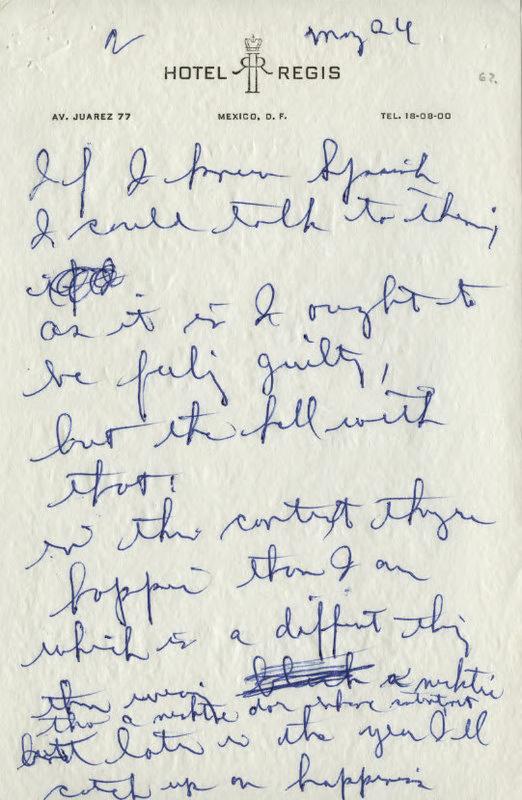 2 May 24
HOTEL REGIS
62.
AV. JUAREZ 77 MEXICO, D. F. TEL. 18-08-00
If I knew Spanish
I could talk to them;
as it is I ought to
be feeling guilty,
but the hell with
that!
in this context they're
happier than I am
which is a different thing
than wearing a necktie
tho a necktie does
but later in the year I'll
catch up on happiness